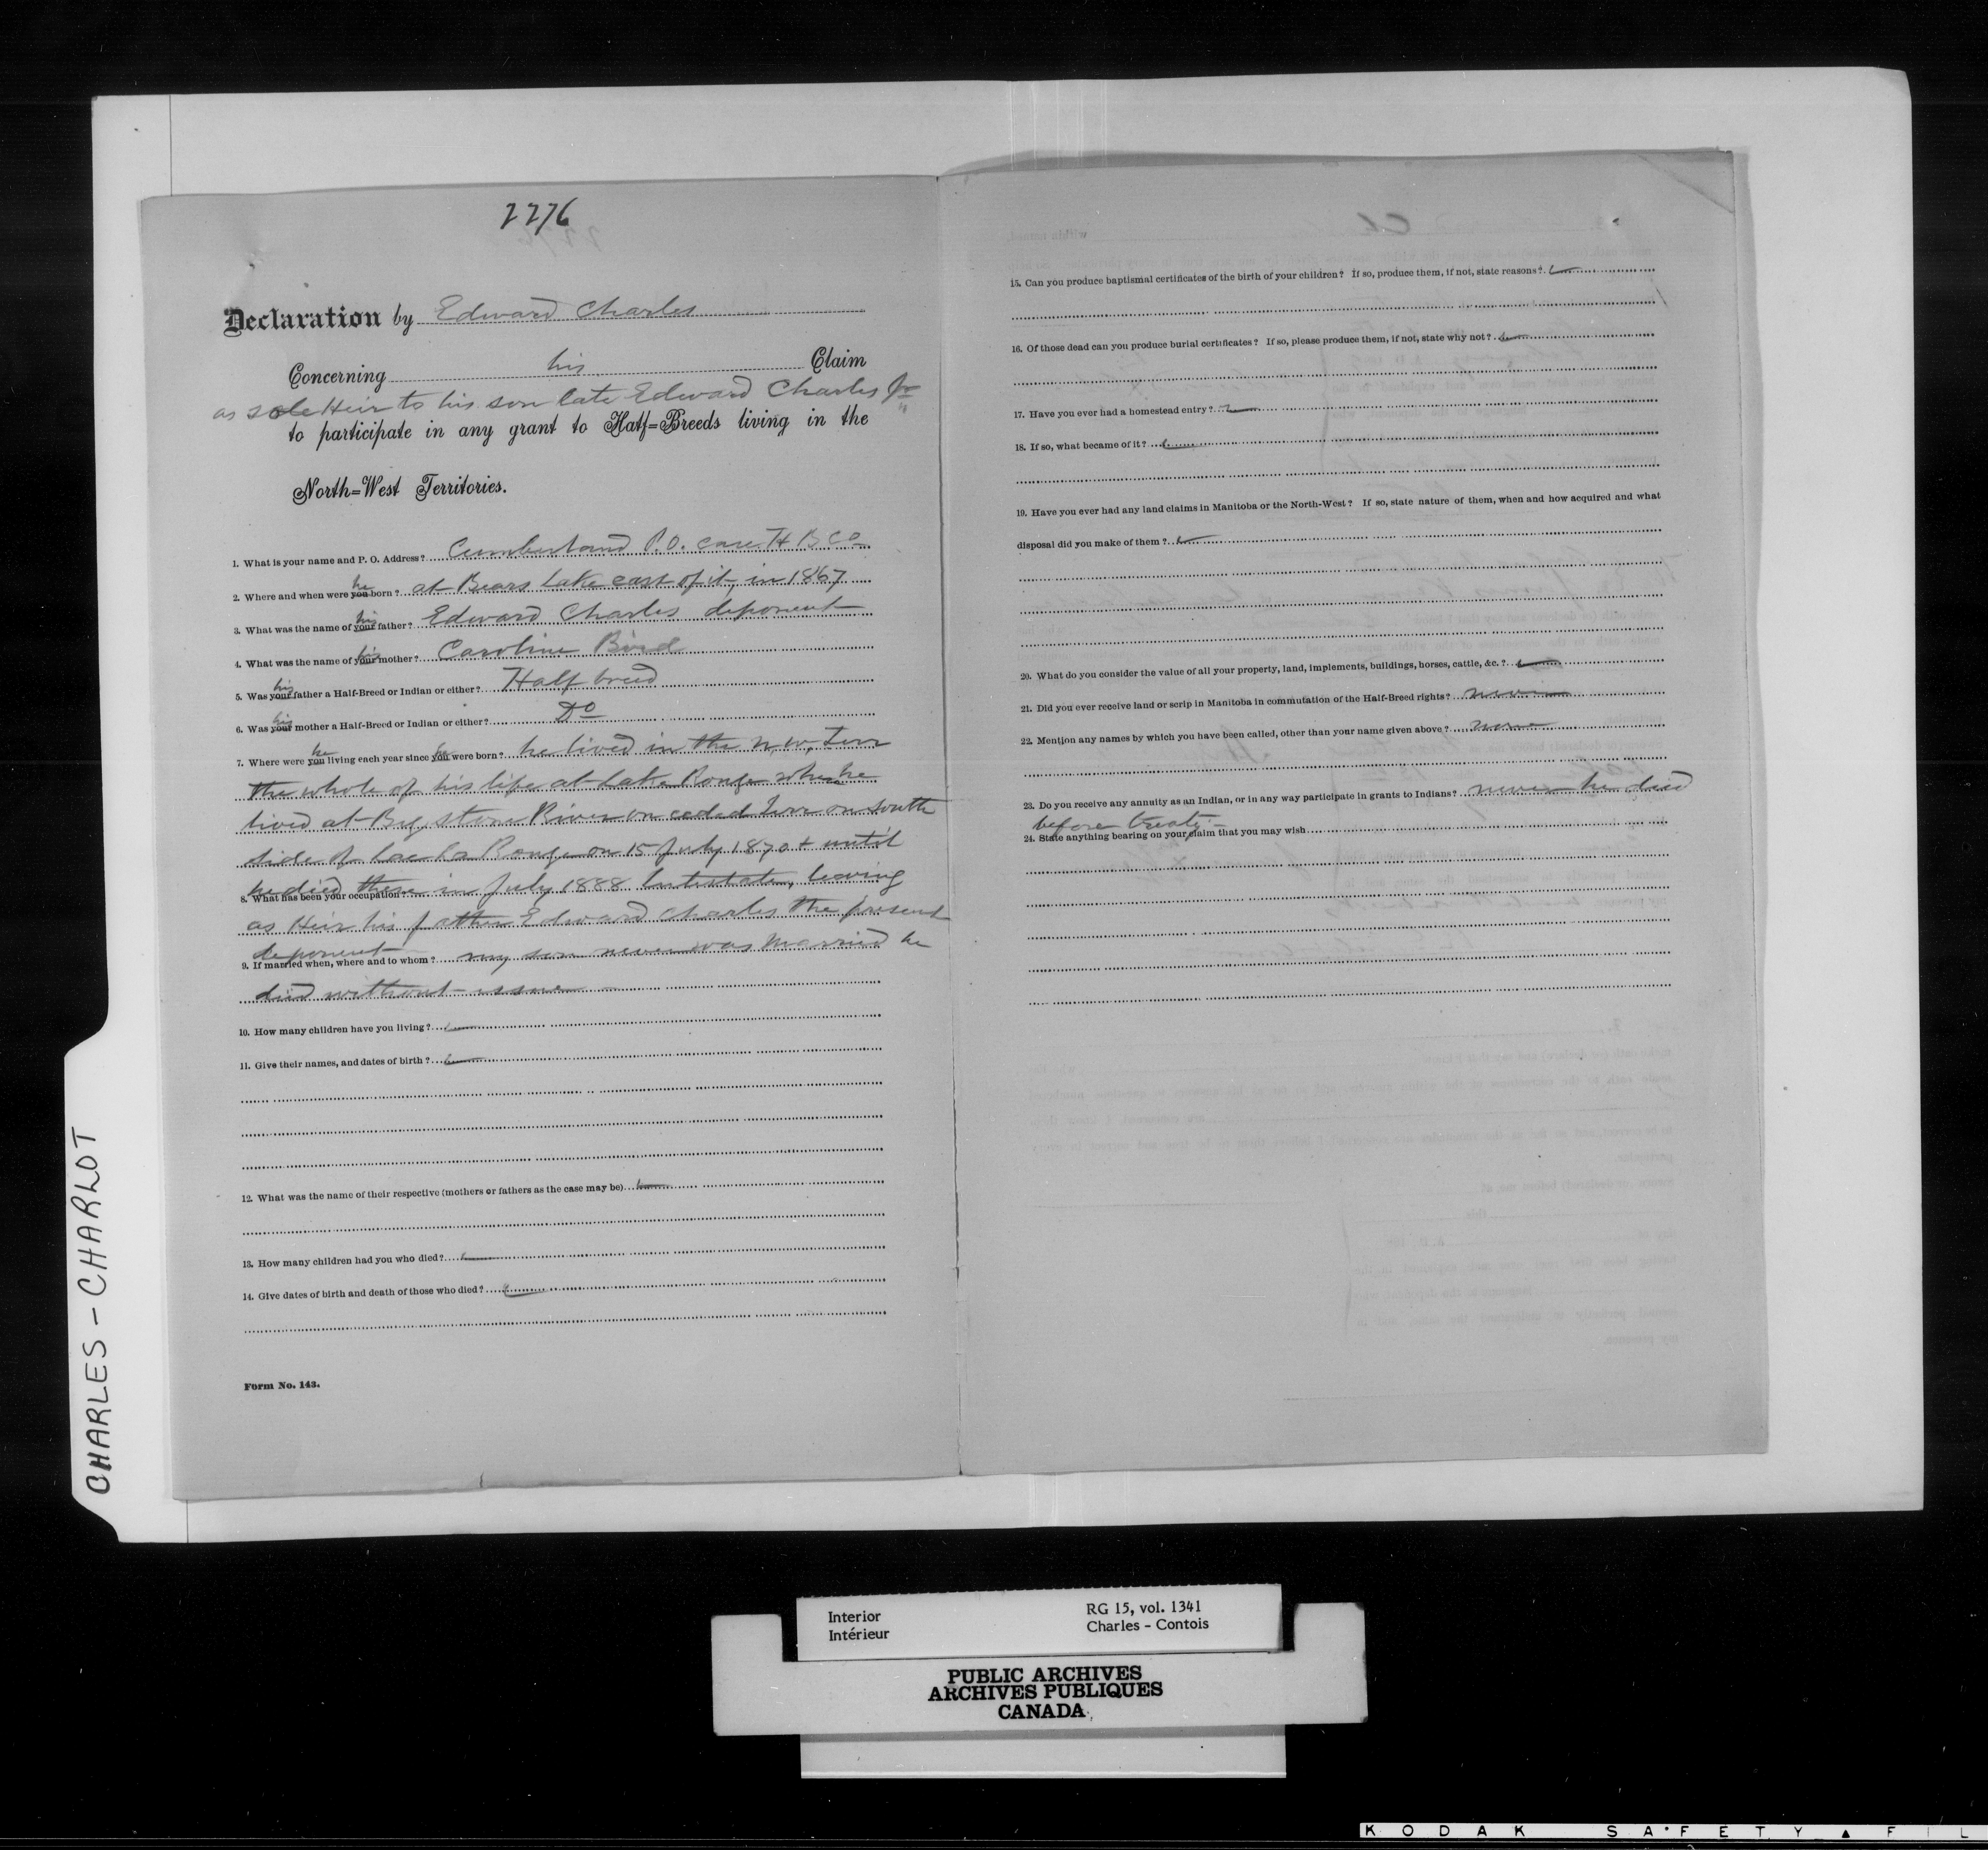 2276
Declaration by Edward Charles
Concerning his Claim
as sole Heir to his son late Edward Charles Jr
to participate in any grant to Half=Breeds living in the
North=West Territories.
1. What is your name and P. O. Address? Cumberland P.O. care H B Co
he
2. Where and when were you born? at Bears Lake east of it, in 1867
his
3. What was the name of your father? Edward Charles deponent
his
4. What was the name of your mother? Caroline Bird
his
5. Was your father a Half-Breed or Indian or either? Half breed
his
6. Was your mother a Half-Breed or Indian or either? Do
he he
7. Where were you living each year since you were born? he lived in the N.W. Terr
the whole of his life at Lake Ronge where he
lived at Big stone River on ceded Terr on south
side of Lac La Ronge on 15 July 1870 & until
he died there in July 1888 Intestate, leaving
8. What has been your occupation?
as Heir his father Edward Charles the present
deponent
9. If married when, where and to whom? my son never was married he
died without issue
10. How many children have you living?
11. Give their names, and dates of birth?
12. What was the name of their respective (mothers or fathers as the case may be)
13. How many children had you who died?
14. Give dates of birth and death of those who died?
Form No. 143.
15. Can you produce baptismal certificates of the birth of your children? If so, produce them, if not, state reasons?
16. Of those dead can you produce burial certificates? If so, please produce them, if not, state why not?
17. Have you ever had a homestead entry?
18. If so, what became of it?
19. Have you ever had any land claims in Manitoba or the North-West? If so, state nature of them, when and how acquired and what
disposal did you make of them?
20. What do you consider the value of all your property, land, implements, buildings, horses, cattle, &c.?
21. Did you ever receive land or scrip in Manitoba in commutation of the Half-Breed rights? never
22. Mention any names by which you have been called, other than your name given above? none
23. Do you receive any annuity as an Indian, or in any way participate in grants to Indians? never he died
before treaty -
24. State anything bearing on your claim that you may wish
CHARLES - CHARLOT
Interior
Intérieur
RG 15, vol. 1341
Charles - Contois
PUBLIC ARCHIVES
ARCHIVES PUBLIQUES
CANADA
KODAK SAFETY FIL